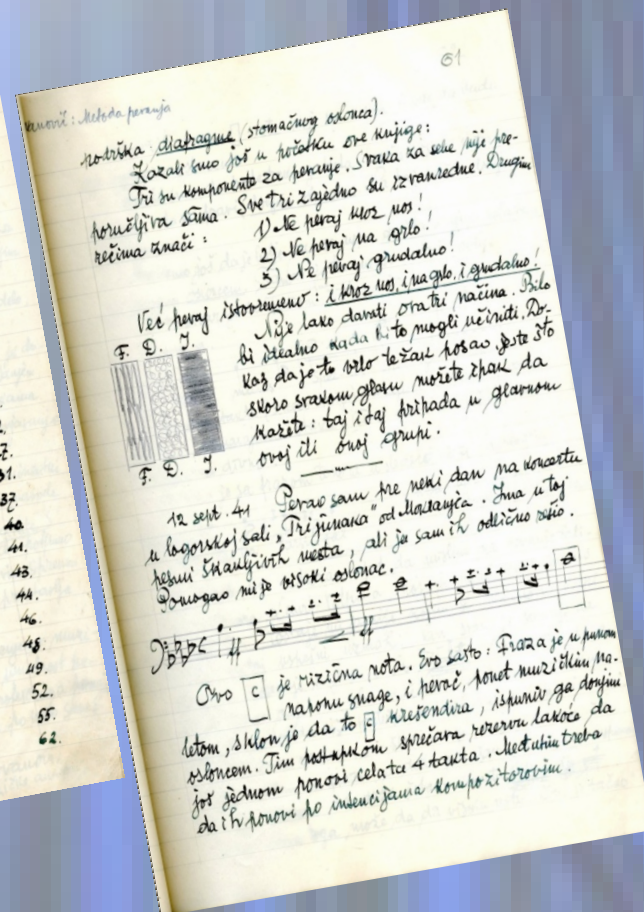 61
anović: Metoda pevanja
podrška diafragme (stomačnog oslonca).
Kazali smo još u početku ove knjige:
Tri su komponente za pevanje. Svaka za sebe nije pre-
poručljiva sama. Sve tri zajedno su izvanredne. Drugim
rečima znači:
1) Ne pevaj kroz nos!
2) Ne pevaj na grlo!
3) Ne pevaj grudalno!
Već pevaj istovremeno: i kroz nos, i na grlo, i grudalno!
Nije lako davati ova tri načina. Bilo
bi idealno kada bi to mogli učiniti. Do-
kaz da je to vrlo težak posao jeste što
skoro svakom glasu možete ipak da
kažete: taj i taj pripada u glavnom
ovoj ili onoj grupi.
F. D. J.
F. D. J.
12 sept. 41 Pevao sam pre neki dan na koncertu
u logorskoj sali „Tri junaka" od . Ima u toj
pesmi škakljivih mesta, ali ja sam ih odlično rešio.
Pomogao mi je visoki oslonac.
C ff ff
Ovo C je rizična nota. Evo zašto: Fraza je u punom
naponu snage, i pevač, ponet muzičkim za-
letom, sklon je da to C krešendira, ispuniv ga donjim
osloncem. Tim postupkom sprečava rezervu lakoće da
još jednom ponovi cela ta 4 takta. Međutim treba
da ih ponovi po intencijama kompozitorovim.
7.
31.
37.
40.
41.
43.
44.
46.
48.
49.
52.
55.
62.